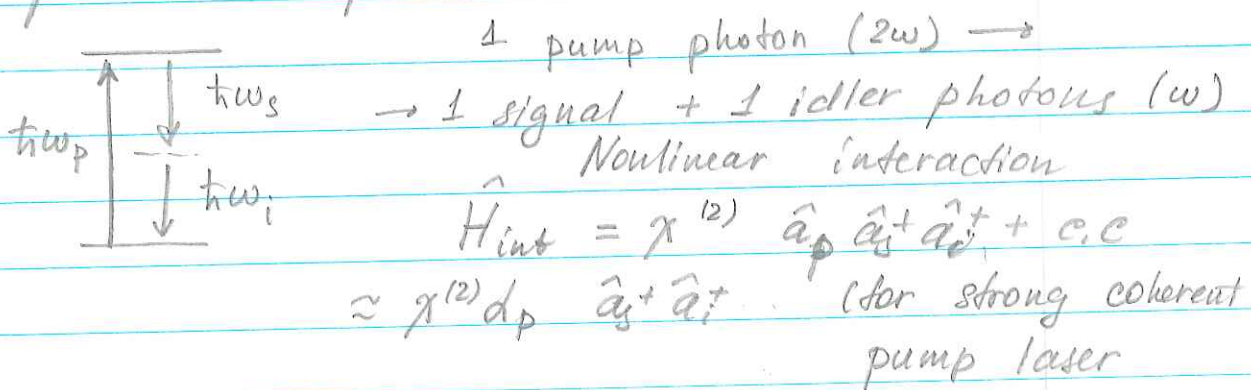 1 pump photon (2ω) →
ħωs
→ 1 signal + 1 idler photons (ω)
ħωp
Nonlinear interaction
ħωi
Ĥint = χ⁽²⁾ âp âs⁺ âi⁺ + c.c
≈ χ⁽²⁾ αp âs⁺ âi⁺ (for strong coherent
pump laser